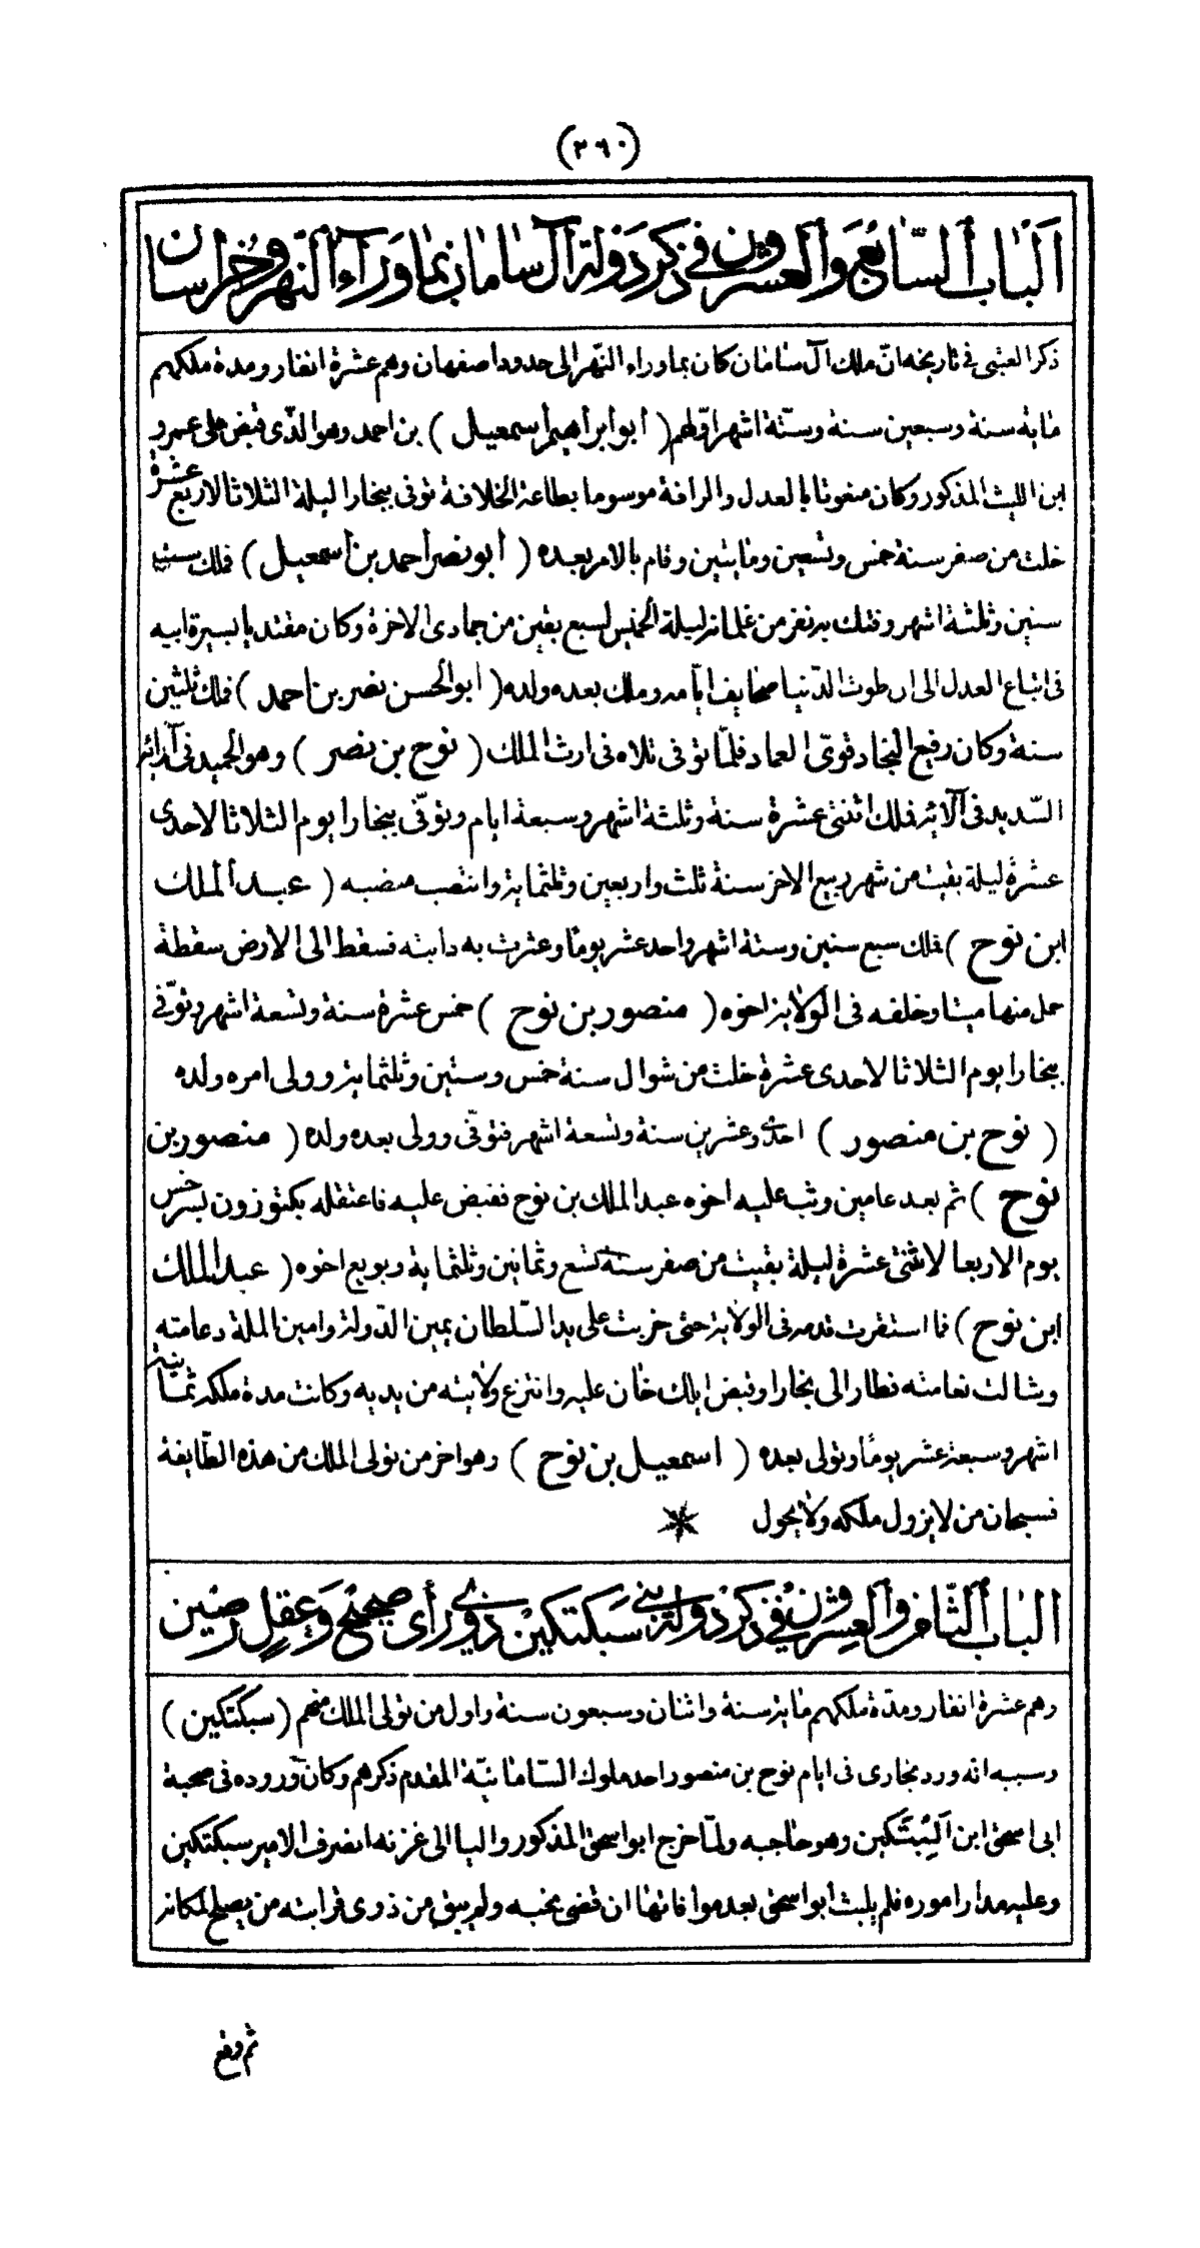 (٢٦٠)
اَلْبٰابُ اَلسّٰابِعُ وَاَلْعِشْرُونَ فى ذِكْرِ دَوْلَةِ اٰلِ سٰامٰان بِمٰا وَرٰآءَ اَلنَّهْرِ وَخُرٰاسان
ذكر العتبى فى تاريخه انّ ملك آل سٰامٰان كان بماوراء النّهر الى حدود اصفهان وهم عشرة انفار ومدة ملكهم
مٰاية سنة وسبعين سنة وستّة اشهر اوّلهم ( أبو ابراهيم أسمعيل ) بن احمد وهو الّذى قبض على عمرو
ابن الليث المذكور وكان منعوتا بالعدل والرافة موسوما بطاعة الخلافة توفى ببخارا ليلة الثلاثا لاربع عشرة
خلت من صفر سنة خمس وتسعين ومايتين وقام بالامر بعده ( أبو نصر أحمد بن أسمعيل ) فملك ست
سنين وثلثة اشهر وفتك به نفر من غلمانه ليلة الخميس لسبع بقين من جمادى الاخرة وكان مقتديا بسيرة ابيه
فى اتباع العدل الى ان طوت الدّنيا صحايف ايّامه وملك بعده ولده ( ابو الحسن نصر بن احمد ) فملك ثلثين
سنة وكان رفيع النجاد قوىّ العماد فلمّا توفى تلاه فى ارث الملك ( نوح بن نصر ) وهو الحميد فى آدائه
السّديد فى آلائه فملك اثنتى عشرة سنة وثلثة اشهر وسبعة ايام وتوفّى ببخارا يوم الثلاثا لاحدى
عشرة ليلة بقيت من شهر ربيع الاخر سنة ثلث واربعين وثلثماية وانتصب منصبه ( عبد الملك
ابن نوح ) فملك سبع سنين وستة اشهر واحد عشر يومًا وعثرت به دابته فسقط الى الارض سقطة
حمل منها ميتا وخلفه فى الولاية اخوه ( منصور بن نوح ) خمس عشرة سنة وتسعة اشهر وتوفّى
ببخارا يوم الثلاثا لاحدى عشرة خلت من شوال سنة خمس وستين وثلثماية وولى امره ولده
( نوح بن منصور ) احدى وعشرين سنة وتسعة اشهر فتوفّى وولى بعده ولده ( منصور بن
نوح ) ثم بعد عامين وثب عليه اخوه عبد الملك بن نوح فقبض عليه فاعتقله بكتوزون بسرخس
يوم الاربعا لاثنتى عشرة ليلة بقيت من صفر سنة تسع وثمانين وثلثماية وبويع اخوه ( عبد الملك
ابن نوح ) فما استقرت قدمه فى الولاية حتى خربت على يد السّلطان يمين الدّولة وامين الملة دعامته
وشالت نعامته فطار الى بخارا وقبض ايلك خان عليه وانتزع ولايته من يديه وكانت مدة ملكه ثمانية
اشهر وسبعة عشر يومًا وتولى بعده ( اسمعيل بن نوح ) وهو اخر من تولى الملك من هذه الطّايفة
فسبحان من لا يزول ملكه ولا يحول
البٰابُ اَلثّٰامِنُ وَاَلْعِشْرُونَ فى ذِكْرِ دَوْلَةِ بَنى سَبَكتَكين ذَوى رَأْىٍ صَحيحٍ وَعَقْلٍ رَصين
وهم عشرة انفار ومدّة ملكهم مٰاية سنة واثنان وسبعون سنة واول من تولى الملك منهم ( سبكتكين )
وسببه انه ورد بخارى فى ايام نوح بن منصور احد ملوك السّامٰانيّة المقدم ذكرهم وكان وروده فى صحبة
ابى اسحق ابن اَلِبْتَكين وهو حاجبه ولمّا خرج ابو اسحق المذكور واليا الى غزنه انصرف الامير سبكتكين
وعليه مدار اموره فلم يلبث أبو اسحق بعد موافاتها ان قضى نحبه ولم يبق من ذوى قرابته من يصلح لمكانه
ثم وقع